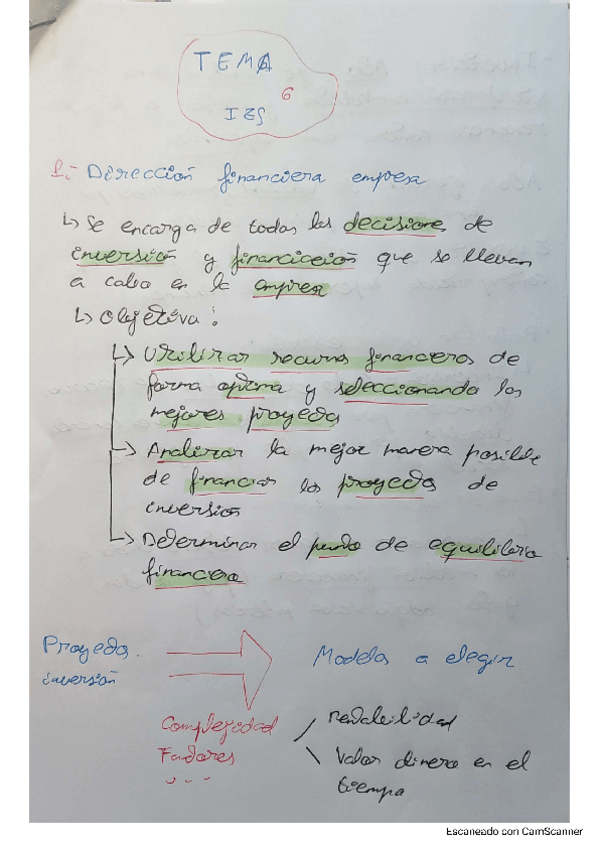 TEMA
6
IES
1.- Dirección financiera empresa
↳ Se encarga de todas las decisiones de
inversión y financiación que se llevan
a cabo en la empresa
↳ Objetivo:
↳ Utilizar recursos financieros de
forma optima y seleccionando los
mejores proyectos
↳ Analizar la mejor manera posible
de financiar los proyectos de
inversión
↳ Determinar el punto de equilibrio
financiero
Proyectos inversión
Modelos a elegir
Complejidad
Factores
...
rentabilidad
Valor dinero en el
tiempo
Escaneado con CamScanner